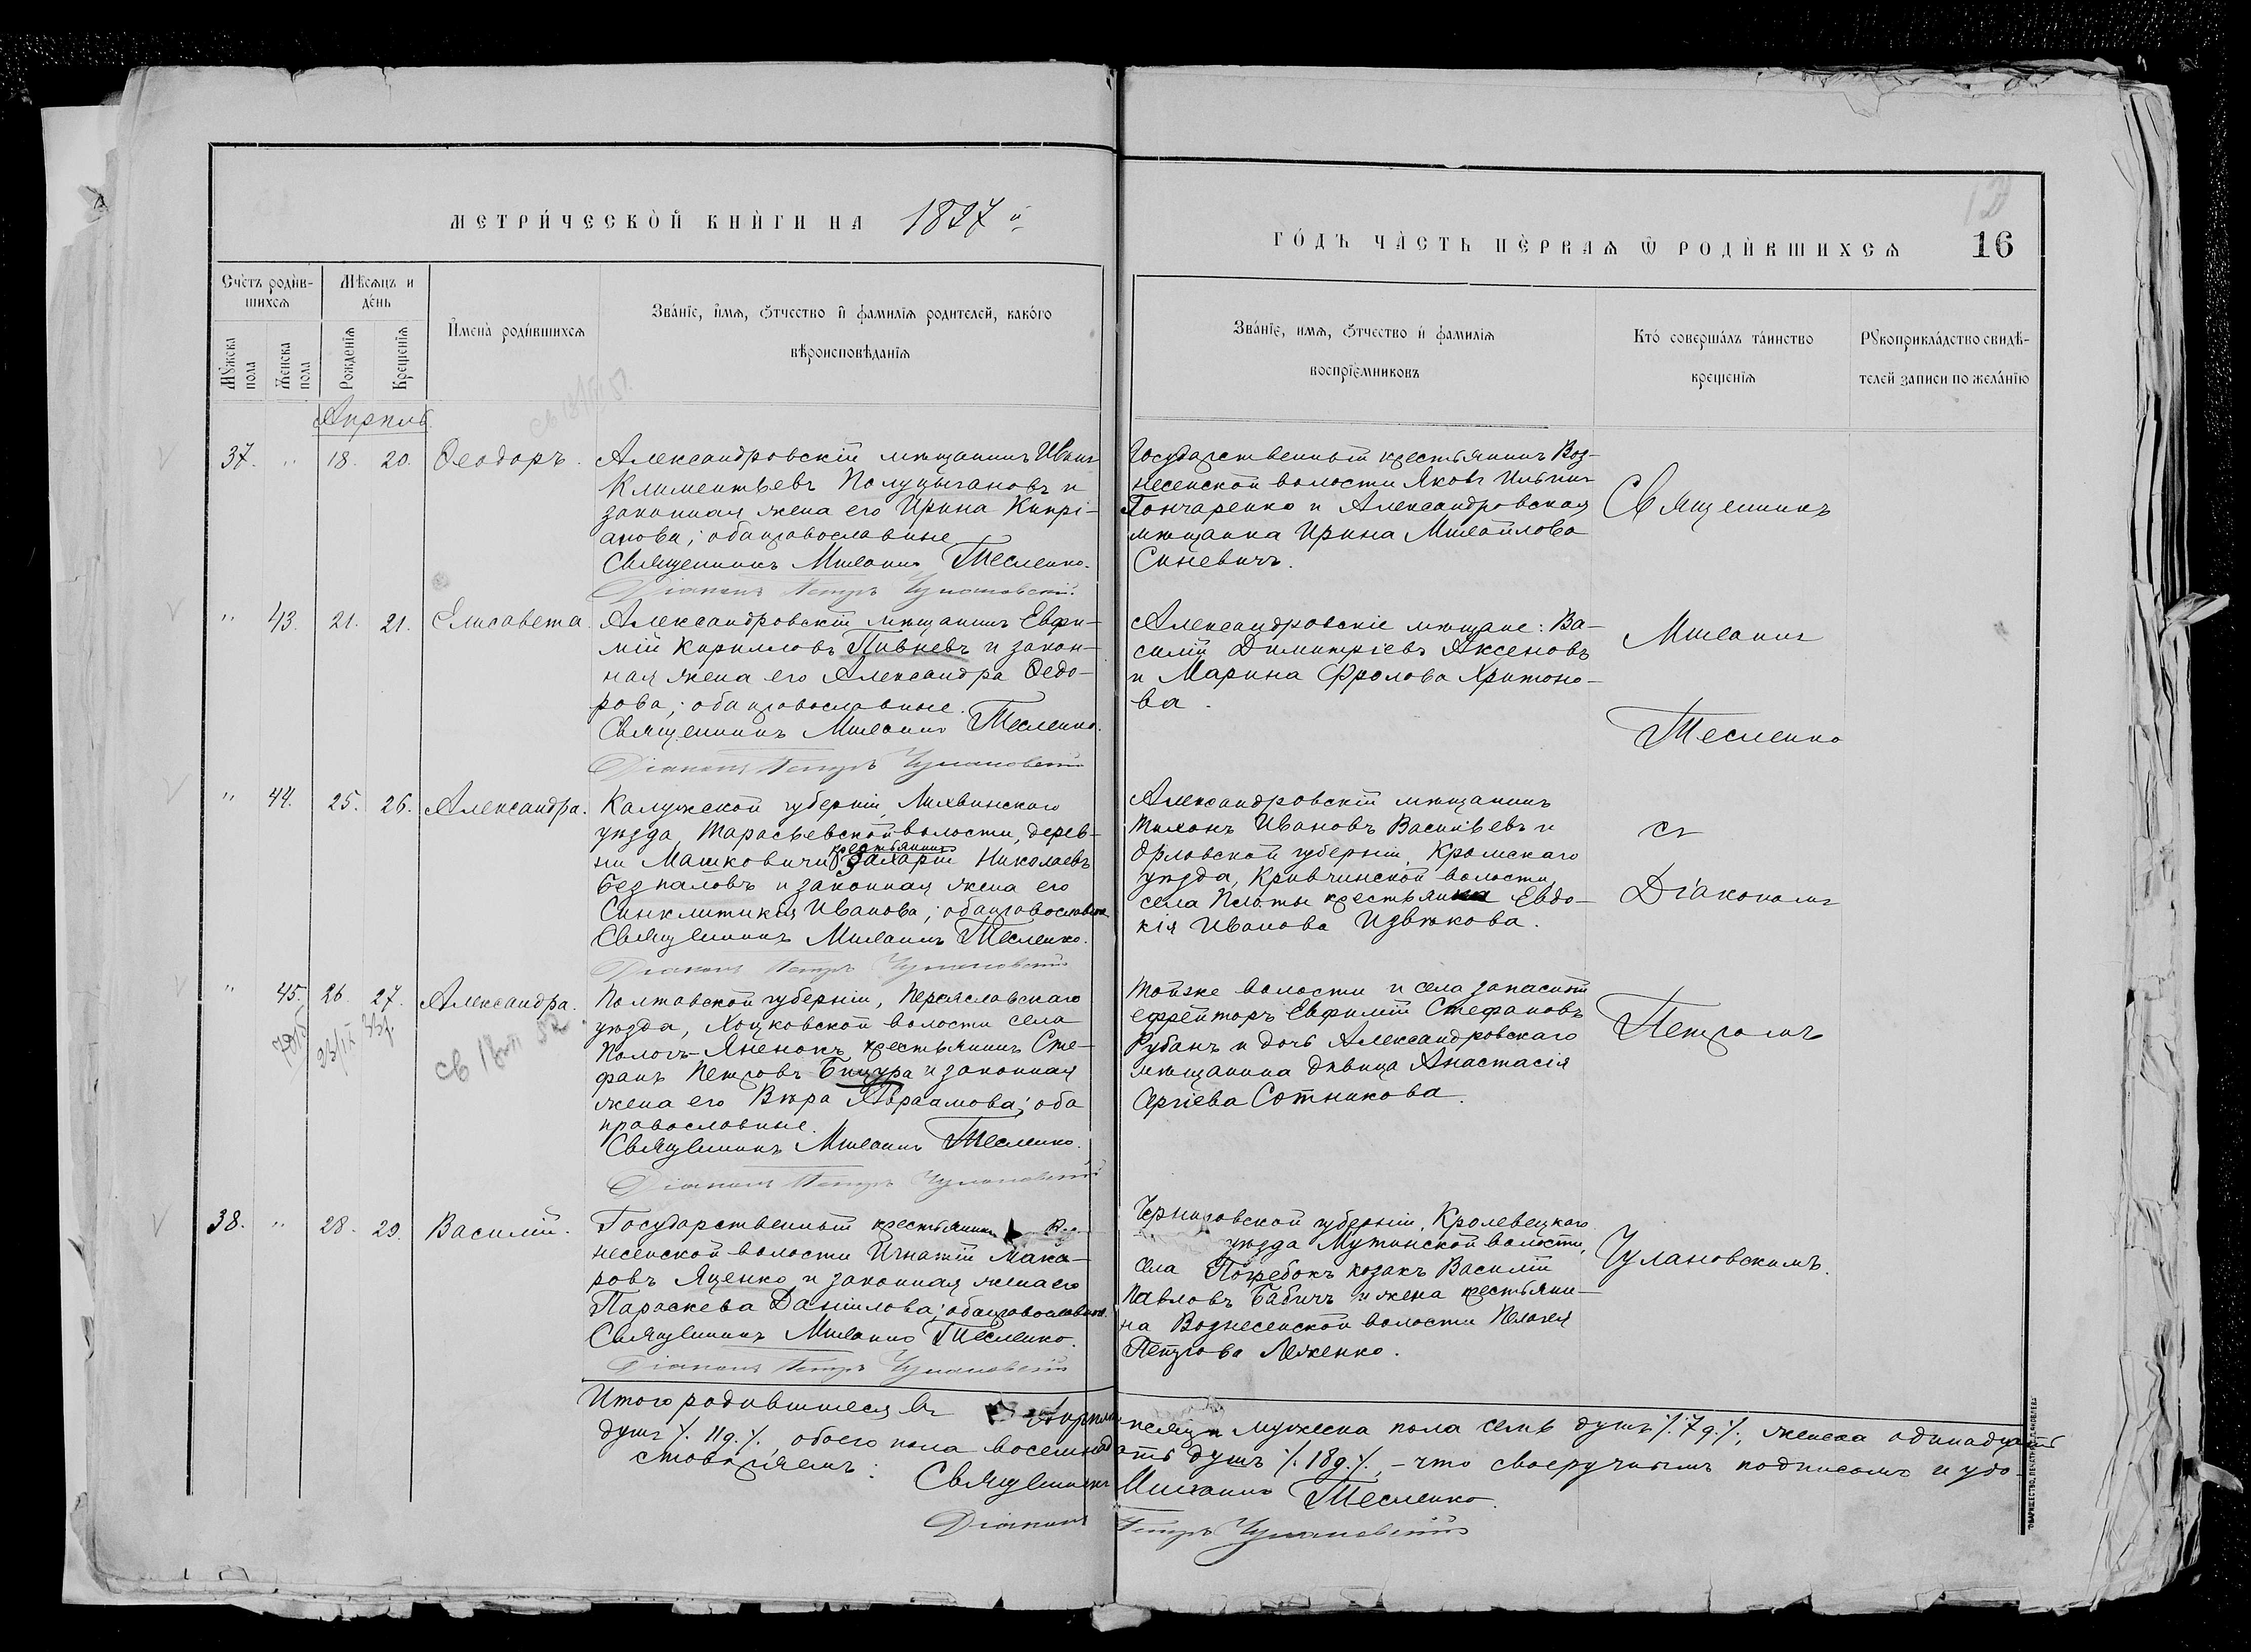 МЕТРИ́ЧЕСКОЙ КНИ́ГИ НА 1897 й
ГО́ДЪ ЧА́СТЬ ПЕ́РВАѦ Ѿ РОДИ́ВШИХСѦ 16
Сче́тъ роди́в-
шихсѧ
Мѣ́сѧцъ и
де́нь
Мꙋ́жска пола
Же́нска пола
Рожде́нїѧ
Креще́нїѧ
И҆мена̀ роди́вшихсѧ
Зва́нїе, и҆́мѧ, ѻ҆́тчество и҆ фамилїѧ родителей, како́го
вѣроисповѣ́данїѧ
Зва́нїе, имѧ, ѻ҆́тчество и҆ фамилїѧ
воспрїе́мниковъ
Кто́ соверша́лъ та́инство
креще́нїѧ
Рꙋкоприкла́дство свидѣ́-
телей записи по жела́нїю
Апрѣль
37. " 18. 20. Ѳеодоръ.
Александровскій мѣщанинъ Иванъ
Климентьевъ Полуцыгановъ и
законная жена его Ирина Кипрі-
анова; оба православные
Священникъ Михаилъ Тесленко.
Діаконъ Петръ Чулановскій.
Государственный крестьянинъ Воз-
несенской волости Яковъ Ильинъ
Гончаренко и Александровская
мѣщанка Ирина Михайлова
Синевичъ.
Священникъ
" 43. 21. 21. Елисавета.
Александровскій мѣщанинъ Евфи-
мій Кирилловъ Пивневъ и закон-
ная жена его Александра Ѳедо-
рова; оба православные.
Священникъ Михаилъ Тесленко.
Діаконъ Петръ Чулановскій
Александровскіе мѣщане: Ва-
силій Димитріевъ Аксеновъ
и Марина Фролова Харитоно-
ва.
Михаилъ
Тесленко
" 44. 25. 26. Александра.
Калужской губерніи, Лихвинскаго
уѣзда, Тарасьевской волости, дерев-
крестьянинъ
ни Машковичи Захарій Николаевъ
Безпаловъ и законная жена его
Синклитикія Иванова; оба православные
Священникъ Михаилъ Тесленко.
Діаконъ Петръ Чулановскій
Александровскій мѣщанинъ
Тихонъ Ивановъ Васильевъ и
Орловской губерніи, Кромскаго
уѣзда, Кривчинской волости,
села Плоты крестьянка Евдо-
кія Иванова Извѣкова.
съ
Діакономъ
" 45. 26. 27. Александра.
Полтавской губерніи, Переяславскаго
уѣзда, Хоцковской волости села
Пологъ-Яненокъ крестьянинъ Сте-
фанъ Петровъ Бицура и законная
жена его Вѣра Авраамова; оба
православные.
Священникъ Михаилъ Тесленко.
Діаконъ Петръ Чулановскій
Тойже волости и села запасный
ефрейторъ Евфимій Стефановъ
Рубанъ и дочь Александровскаго
мѣщанина дѣвица Анастасія
Сергіева Сотникова.
Петромъ
38. " 28. 29. Василій.
Государственный крестьянинъ Воз-
несенской волости Игнатій Мака-
ровъ Яценко и законная жена его
Параскева Даніилова; оба православные.
Священникъ Михаилъ Тесленко.
Діаконъ Петръ Чулановскій
Черниговской губерніи, Кролевецкаго
уѣзда Мутинской волости,
села Погребокъ козакъ Василій
Павловъ Бабичъ и жена крестьяни-
на Вознесенской волости Пелагея
Петрова Леженко.
Чулановскимъ.
Итого родившихся въ Апрѣлѣ мѣсяцѣ мужеска пола семь душъ /.7д./., женска одинадцать
душъ /.11д./., обоего пола восемнадцать душъ /.18д./., – что своеручнымъ подписомъ и удо-
стовѣряемъ: Священникъ Михаилъ Тесленко.
Діаконъ Петръ Чулановскій